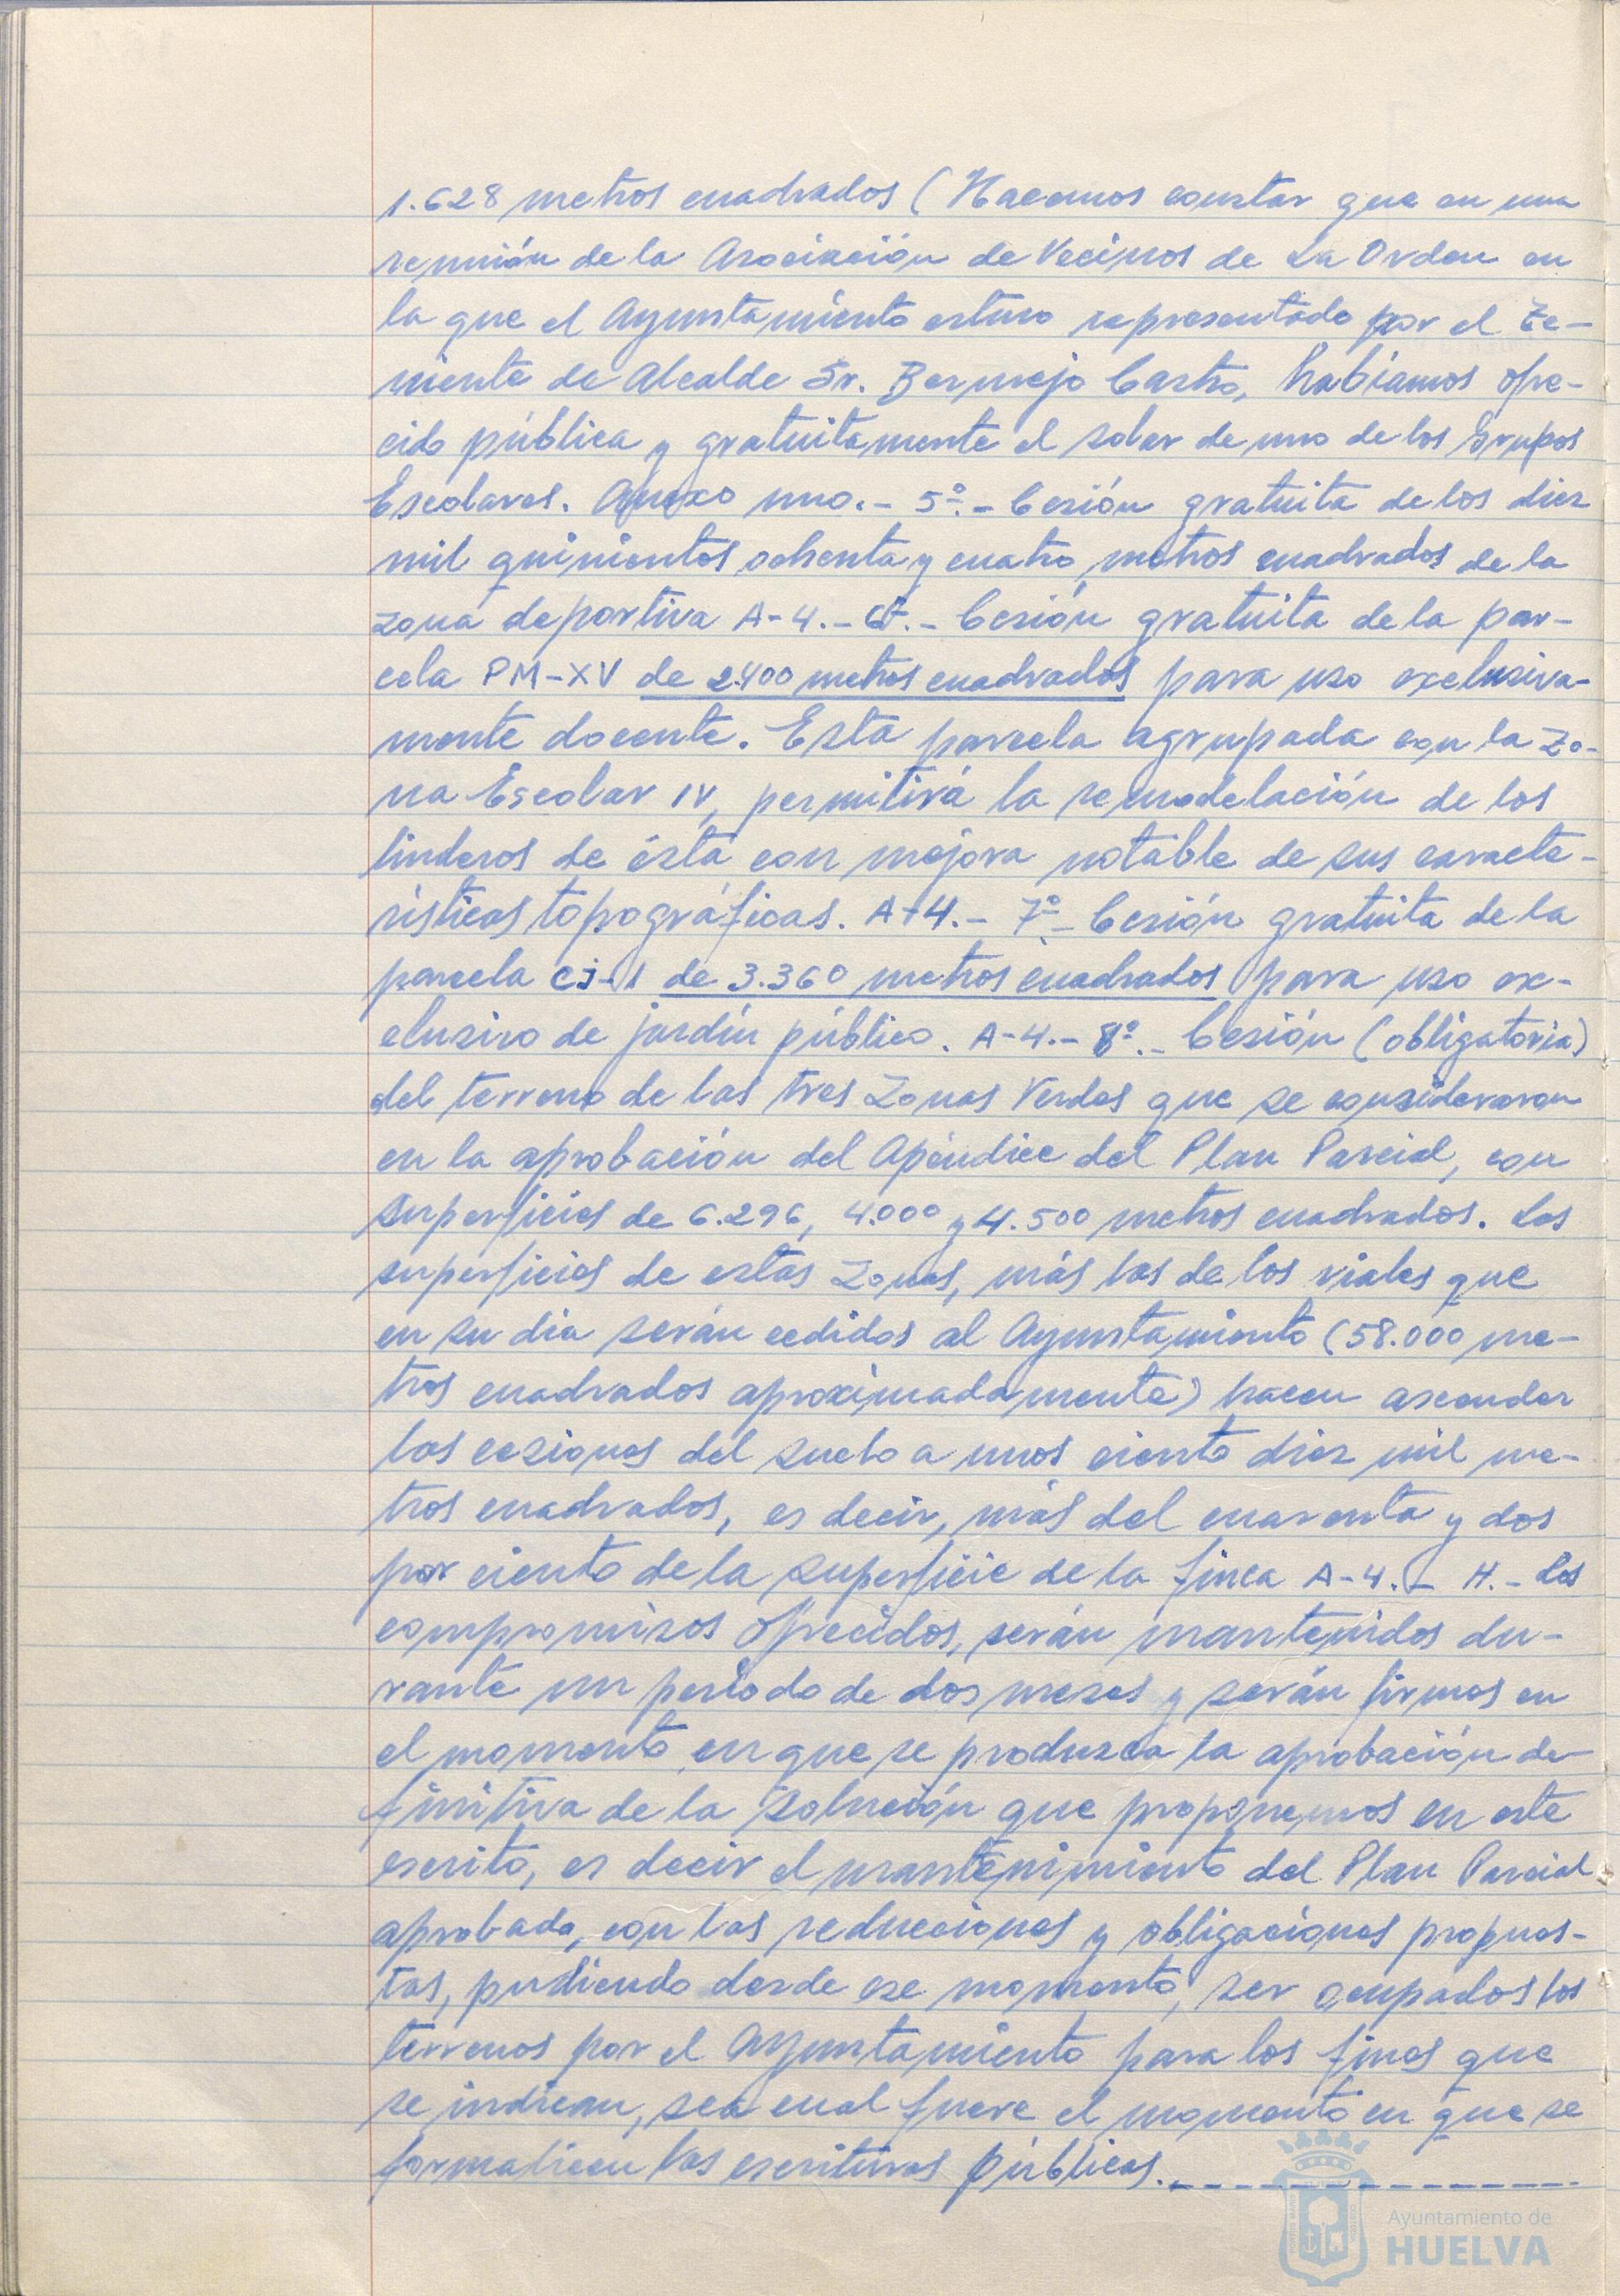 1.628 metros cuadrados (Hacemos constar que en una
reunión de la Asociación de Vecinos de La Orden en
la que el Ayuntamiento estuvo representado por el Te-
niente de Alcalde Sr. Bermejo Castro, habíamos ofre-
cido pública y gratuitamente el solar de uno de los Grupos
Escolares. Anexo uno.- 5º.- Cesión gratuita de los diez
mil quinientos ochenta y cuatro metros cuadrados de la
zona deportiva A-4.- 6º.- Cesión gratuita de la par-
cela PM-XV de 2.400 metros cuadrados para uso exclusiva-
mente docente. Esta parcela agrupada con la Zo-
na Escolar IV, permitirá la remodelación de los
linderos de ésta con mejora notable de sus caracte-
rísticas topográficas. A-4.- 7º.- Cesión gratuita de la
parcela CJ-1 de 3.360 metros cuadrados para uso ex-
clusivo de jardín público. A-4.- 8º.- Cesión (obligatoria)
del terreno de las tres Zonas Verdes que se consideraron
en la aprobación del Apéndice del Plan Parcial, con
superficies de 6.296, 4.000 y 4.500 metros cuadrados. Las
superficies de estas Zonas, más las de los viales que
en su día serán cedidos al Ayuntamiento (58.000 me-
tros cuadrados aproximadamente) hacen ascender
las cesiones del suelo a unos ciento diez mil me-
tros cuadrados, es decir, más del cuarenta y dos
por ciento de la superficie de la finca A-4.- H.- Los
compromisos ofrecidos, serán mantenidos du-
rante un período de dos meses y serán firmes en
el momento en que se produzca la aprobación de-
finitiva de la solución que proponemos en este
escrito, es decir el mantenimiento del Plan Parcial
aprobado, con las reducciones y obligaciones propues-
tas, pudiendo desde ese momento, ser ocupados los
terrenos por el Ayuntamiento para los fines que
se indican, sea cual fuere el momento en que se
formalicen las escrituras públicas.
Ayuntamiento de
HUELVA